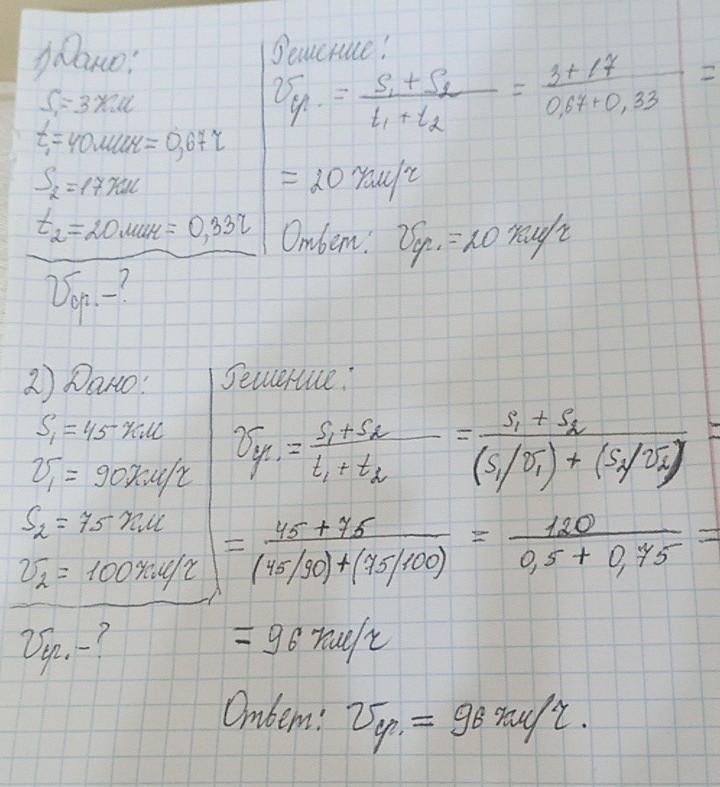 1) Дано:
S₁=3 км
t₁=40 мин = 0,67 ч
S₂=17 км
t₂=20 мин = 0,33 ч
Vср. - ?
Решение:
Vср. = (S₁ + S₂)/(t₁ + t₂) = (3+17)/(0,67+0,33) =
= 20 км/ч
Ответ: Vср. = 20 км/ч
2) Дано:
S₁ = 45 км
V₁ = 90 км/ч
S₂ = 75 км
V₂ = 100 км/ч
Vср. - ?
Решение:
Vср. = (S₁ + S₂)/(t₁ + t₂) = (S₁ + S₂)/((S₁/V₁) + (S₂/V₂)) =
= (45 + 75)/((45/90)+(75/100)) = 120/(0,5 + 0,75) =
= 96 км/ч
Ответ: Vср. = 96 км/ч.